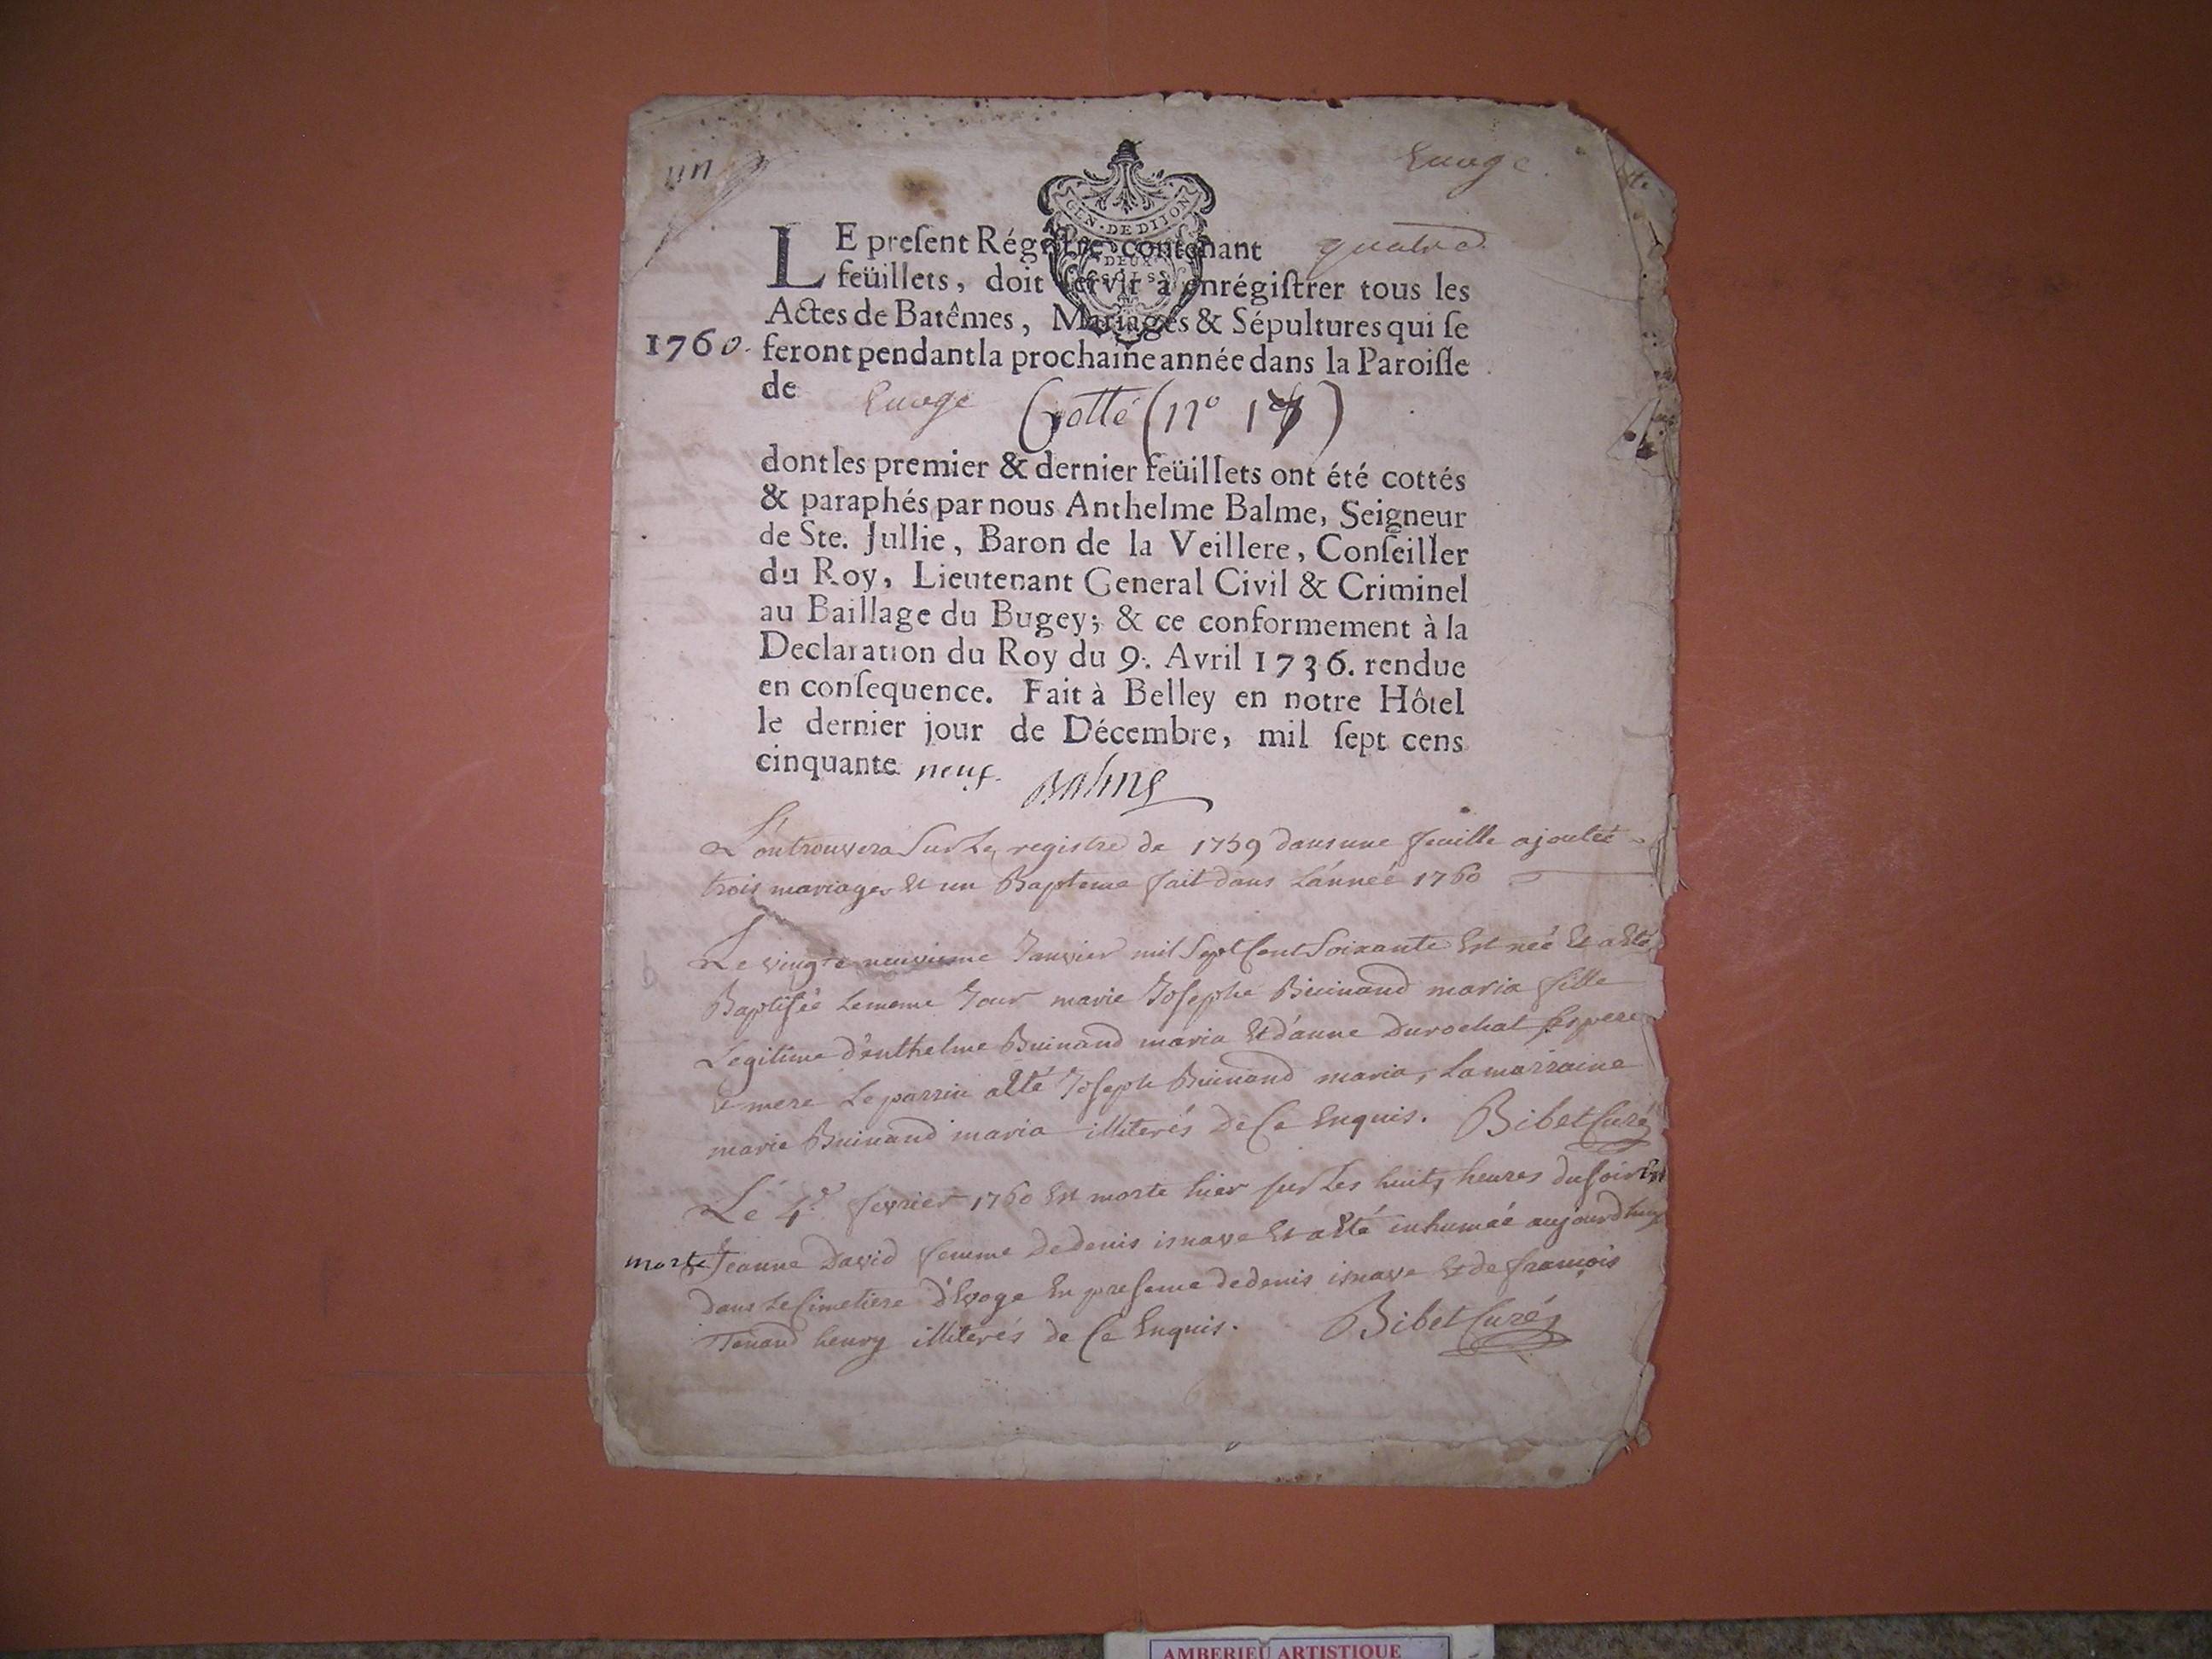 un
Evoge
GEN. DE DIJON
DEUX
SOLS
LE preſent Régiſtre contenant quatre
feüillets, doit ſervir à enrégiſtrer tous les
Actes de Batêmes, Mariages & Sépultures qui ſe
1760. feront pendant la prochaine année dans la Paroiſſe
de Evoge Cotté (n°
dont les premier & dernier feüillets ont été cottés
& paraphés par nous Anthelme Balme, Seigneur
de Ste. Jullie, Baron de la Veillere, Conſeiller
du Roy, Lieutenant General Civil & Criminel
au Baillage du Bugey; & ce conformement à la
Declaration du Roy du 9. Avril 1736. rendue
en conſequence. Fait à Belley en notre Hôtel
le dernier jour de Décembre, mil ſept cens
cinquante neuf. Balme
L'on trouvera Sur Le registre de 1759 dans une feuille ajoutée
trois mariages Et un Bapteme fait dans L'année 1760
Le vingt neuvieme Janvier mil Sept Cent Soixante Est née Et a Eté
Baptisée Le meme Jour marie Josephe Buinand maria fille
Legitime d'enthelme Buinand maria Et d'anne Durochat ses pere
Et mere Le parrin a Eté Joseph Buinand maria, La marraine
marie Buinand maria illiterés de Ce Enquis. Bibet Curé
Le 4e fevrier 1760 Est morte hier sur Les huit heures du soir
morte Jeanne David femme de denis isnave Et a Eté inhumée aujourd huy
dans Le Cimetiere d'Evoge En presence de denis isnave Et de françois
Tenand henry illiterés de Ce Enquis. Bibet Curé
AMBERIEU ARTISTIQUE